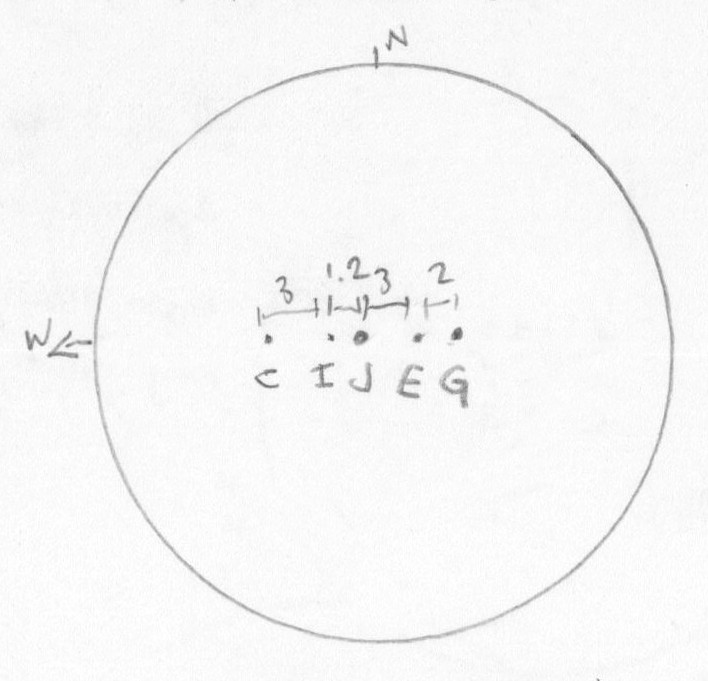 N
3 1.2 3 2
W
C I J E G